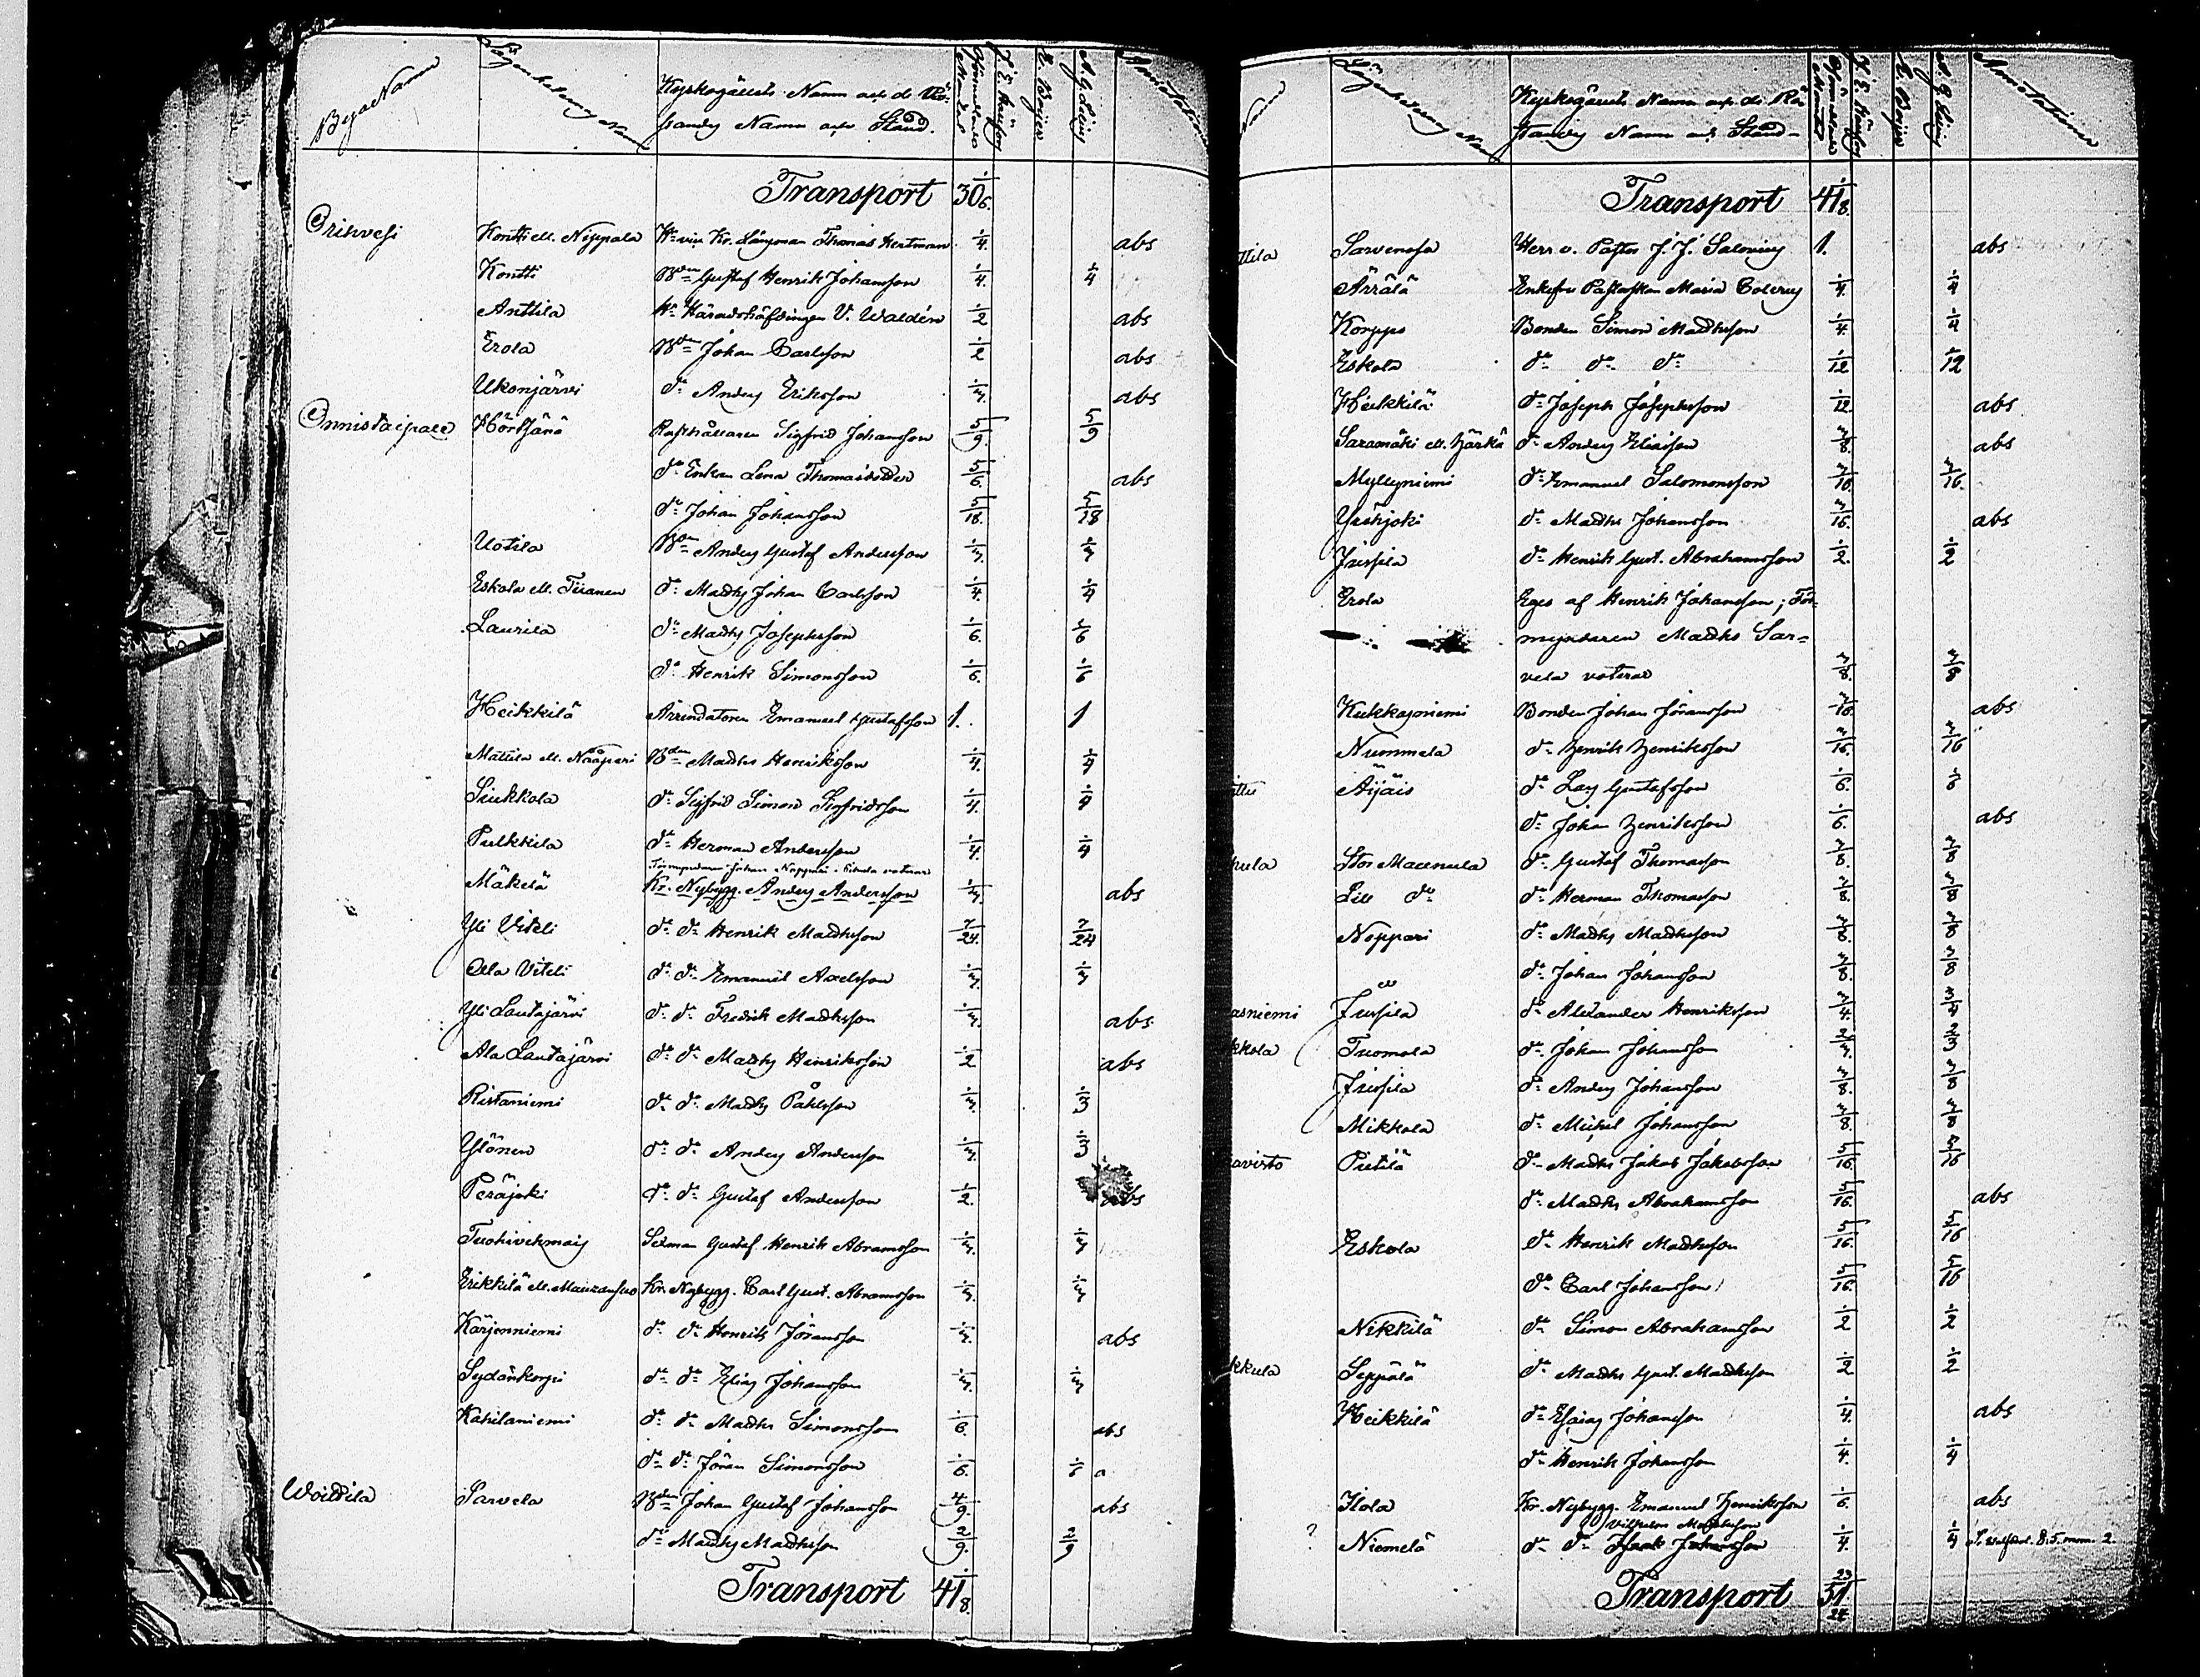 Bya Namn Lägenhetens Namn Kyrkogåendes Namn och de Rö- Förmedlade Mantal A. G. Annotation
standes Namn och Stånd.
Transport 30 1/6.
Orihvesi Kontti ell. Nippala Hr Länsman Thomas Hertman 1/4. abs
Kontti Bden Gustaf Henrik Johansson 1/4. 1/4
Anttila Hr Häradshöfdingen V. Waldén 1/2 abs
Erola Bden Johan Carlsson 1/2 abs
Ukonjärvi do Anders Eriksson 1/3. abs
Onnistaipale Sigfrid Johansson 5/9. 5/9
do Enkan Lena Thomasdotter 5/6. abs
do Johan Johansson 5/18. 5/18
Uotila Bden Anders Gustaf Andersson 1/3. 1/3
Eskola ell. Tiranen do Matths Johan Carlsson 1/4. 1/4
Laurila do Matths Josephsson 1/6. 1/6
do Henrik Simonsson 1/6. 1/6
Heikkilä Arrendatoren Emanuel Gustafsson 1. 1
Mattila ell. Nääpäri Bden Matths Henriksson 1/4. 1/4
Siukkola do Sigfrid Simon Sigfridsson 1/4. 1/4
Pulkkila do Herman Andersson 1/4. 1/4
Mäkelä Kr. Nybygg. Anders Andersson 1/3. abs
Yli Viteli do do Henrik Matthsson 7/24. 7/24
Ala Viteli do do Emanuel Axelsson 1/3. 1/3
Yli Lautajärvi do do Fredrik Matthsson 1/3. abs
Ala Lautajärvi do do Matths Henriksson 1/2 abs
Ristaniemi do do Matths Påhlsson 1/3. 1/3
Ylönen do do Anders Andersson 1/3. 1/3
Peräjoki do do Gustaf Andersson 1/2. abs
Gustaf Henrik Abramsson 1/3. 1/3
Erikkilä ell. Kr. Nybygg. Carl Gust. Abramsson 1/3. 1/3
Kärjenniemi do do Henrik Jöransson 1/3. abs
Sydänkorpi do do Elias Johansson 1/3. 1/3
Kahilaniemi do do Matths Simonsson 1/6. abs
do do Jöran Simonsson 1/6. 1/6 a
Woittila Sarvela Bden Johan Gustaf Johansson 4/9. abs
do Matths Matthsson 2/9. 2/9
Transport 41 1/8.
Namn Lägenhetens Namn Kyrkogåendes Namn och de Rö- Förmedlade Mantal A. G. Annotation
standes Namn och Stånd
Transport 41 1/8.
ttila Sarvensa Herr v. Pastor J. J. Salovius 1. abs
Ärrälä Enkefru Maria 1/4. 1/4
Korppo Bonden Simon Matthsson 1/4. 1/4
Eskola do do do 1/12 1/12
Heikkilä do Joseph Josephsson 1/12. abs
Saramäki ell. Härkä do Anders Eliasson 3/8. abs
Myllyniemi do Emanuel Salomonsson 3/16. 3/16.
do Matths Johansson 3/16. abs
Jussila do Henrik Gust. Abrahamsson 1/2. 1/2
Erola Eges af Henrik Johansson; För-
myndaren Matths Sar=
vela voterar 3/8. 3/8
Kukkaroniemi Bonden Johan Jöransson 3/16. abs
Nummela do Henrik Henriksson 3/16. 3/16
Äijäis do Lars Gustafsson 1/6. 1/6
do Johan Henriksson 1/6. abs
kula Stor Maunula do Gustaf Thomasson 3/8. 3/8
Lill do do Herman Thomasson 3/8. 3/8
Noppari do Matths Matthsson 3/8. 3/8
do Johan Johansson 3/8. 3/8
asniemi Jussila do Alexander Henriksson 3/4. 3/4
kkola Tuomola do Johan Johansson 2/3. 2/3
Jussila do Anders Johansson 3/8. 3/8
Mikkola do Michel Johansson 3/8. 3/8
avisto Pietilä do Matths Jakob Jakobsson 5/16. 5/16
do Matths Abrahamsson 5/16. abs
Eskola do Henrik Matthsson 5/16. 5/16
do Carl Johansson 5/16. 5/16
Nikkilä do Simon Abrahamsson 1/2 1/2
kkula Seppälä do Matths Gust. Matthsson 1/2 1/2
Heikkilä do Esaias Johansson 1/4. abs
do Henrik Johansson 1/4. 1/4
Ilola Kr. Nybygg. Emanuel Henriksson 1/6. abs
Vilhelm
? Niemelä do do Isaak Johansson 1/4. 1/4
Transport 51 23/24